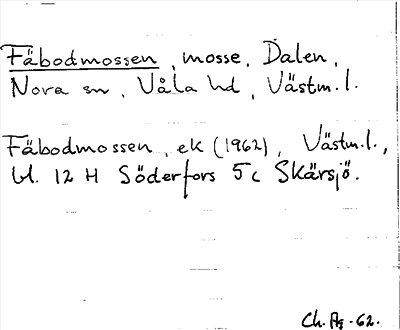 Fäbodmossen, mosse, Dalen,
Nora sn, Våla hd, Västm.l.
Fäbodmossen, ek (1962), Västm.l.,
bl. 12 H Söderfors 5 c Skärsjö.
Ch. Ag -62.